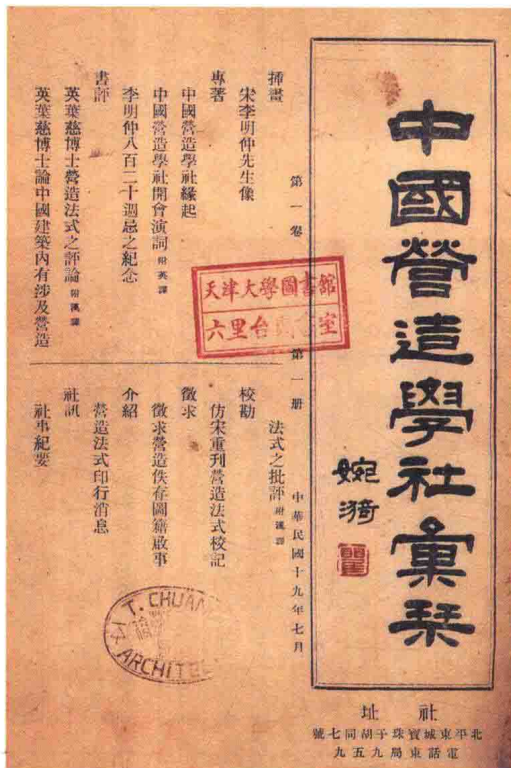 中國營造學社彙栞
婉漪
第一卷
第一册
中華民國十九年七月
插畫
宋李明仲先生像
專著
中國營造學社緣起
中國營造學社開會演詞 附英譯
李明仲八百二十週忌之紀念
書評
英葉慈博士營造法式之評論 附漢譯
英葉慈博士論中國建築內有涉及營造
法式之批評 附漢譯
校勘
仿宋重刊營造法式校記
徵求
徵求營造佚存圖籍啟事
介紹
營造法式印行消息
社訊
社事紀要
天津大學圖書館
六里台
室
T. CHUAN
ARCHITE
社址
北平東城寶珠子胡同七號
電話東局九五九